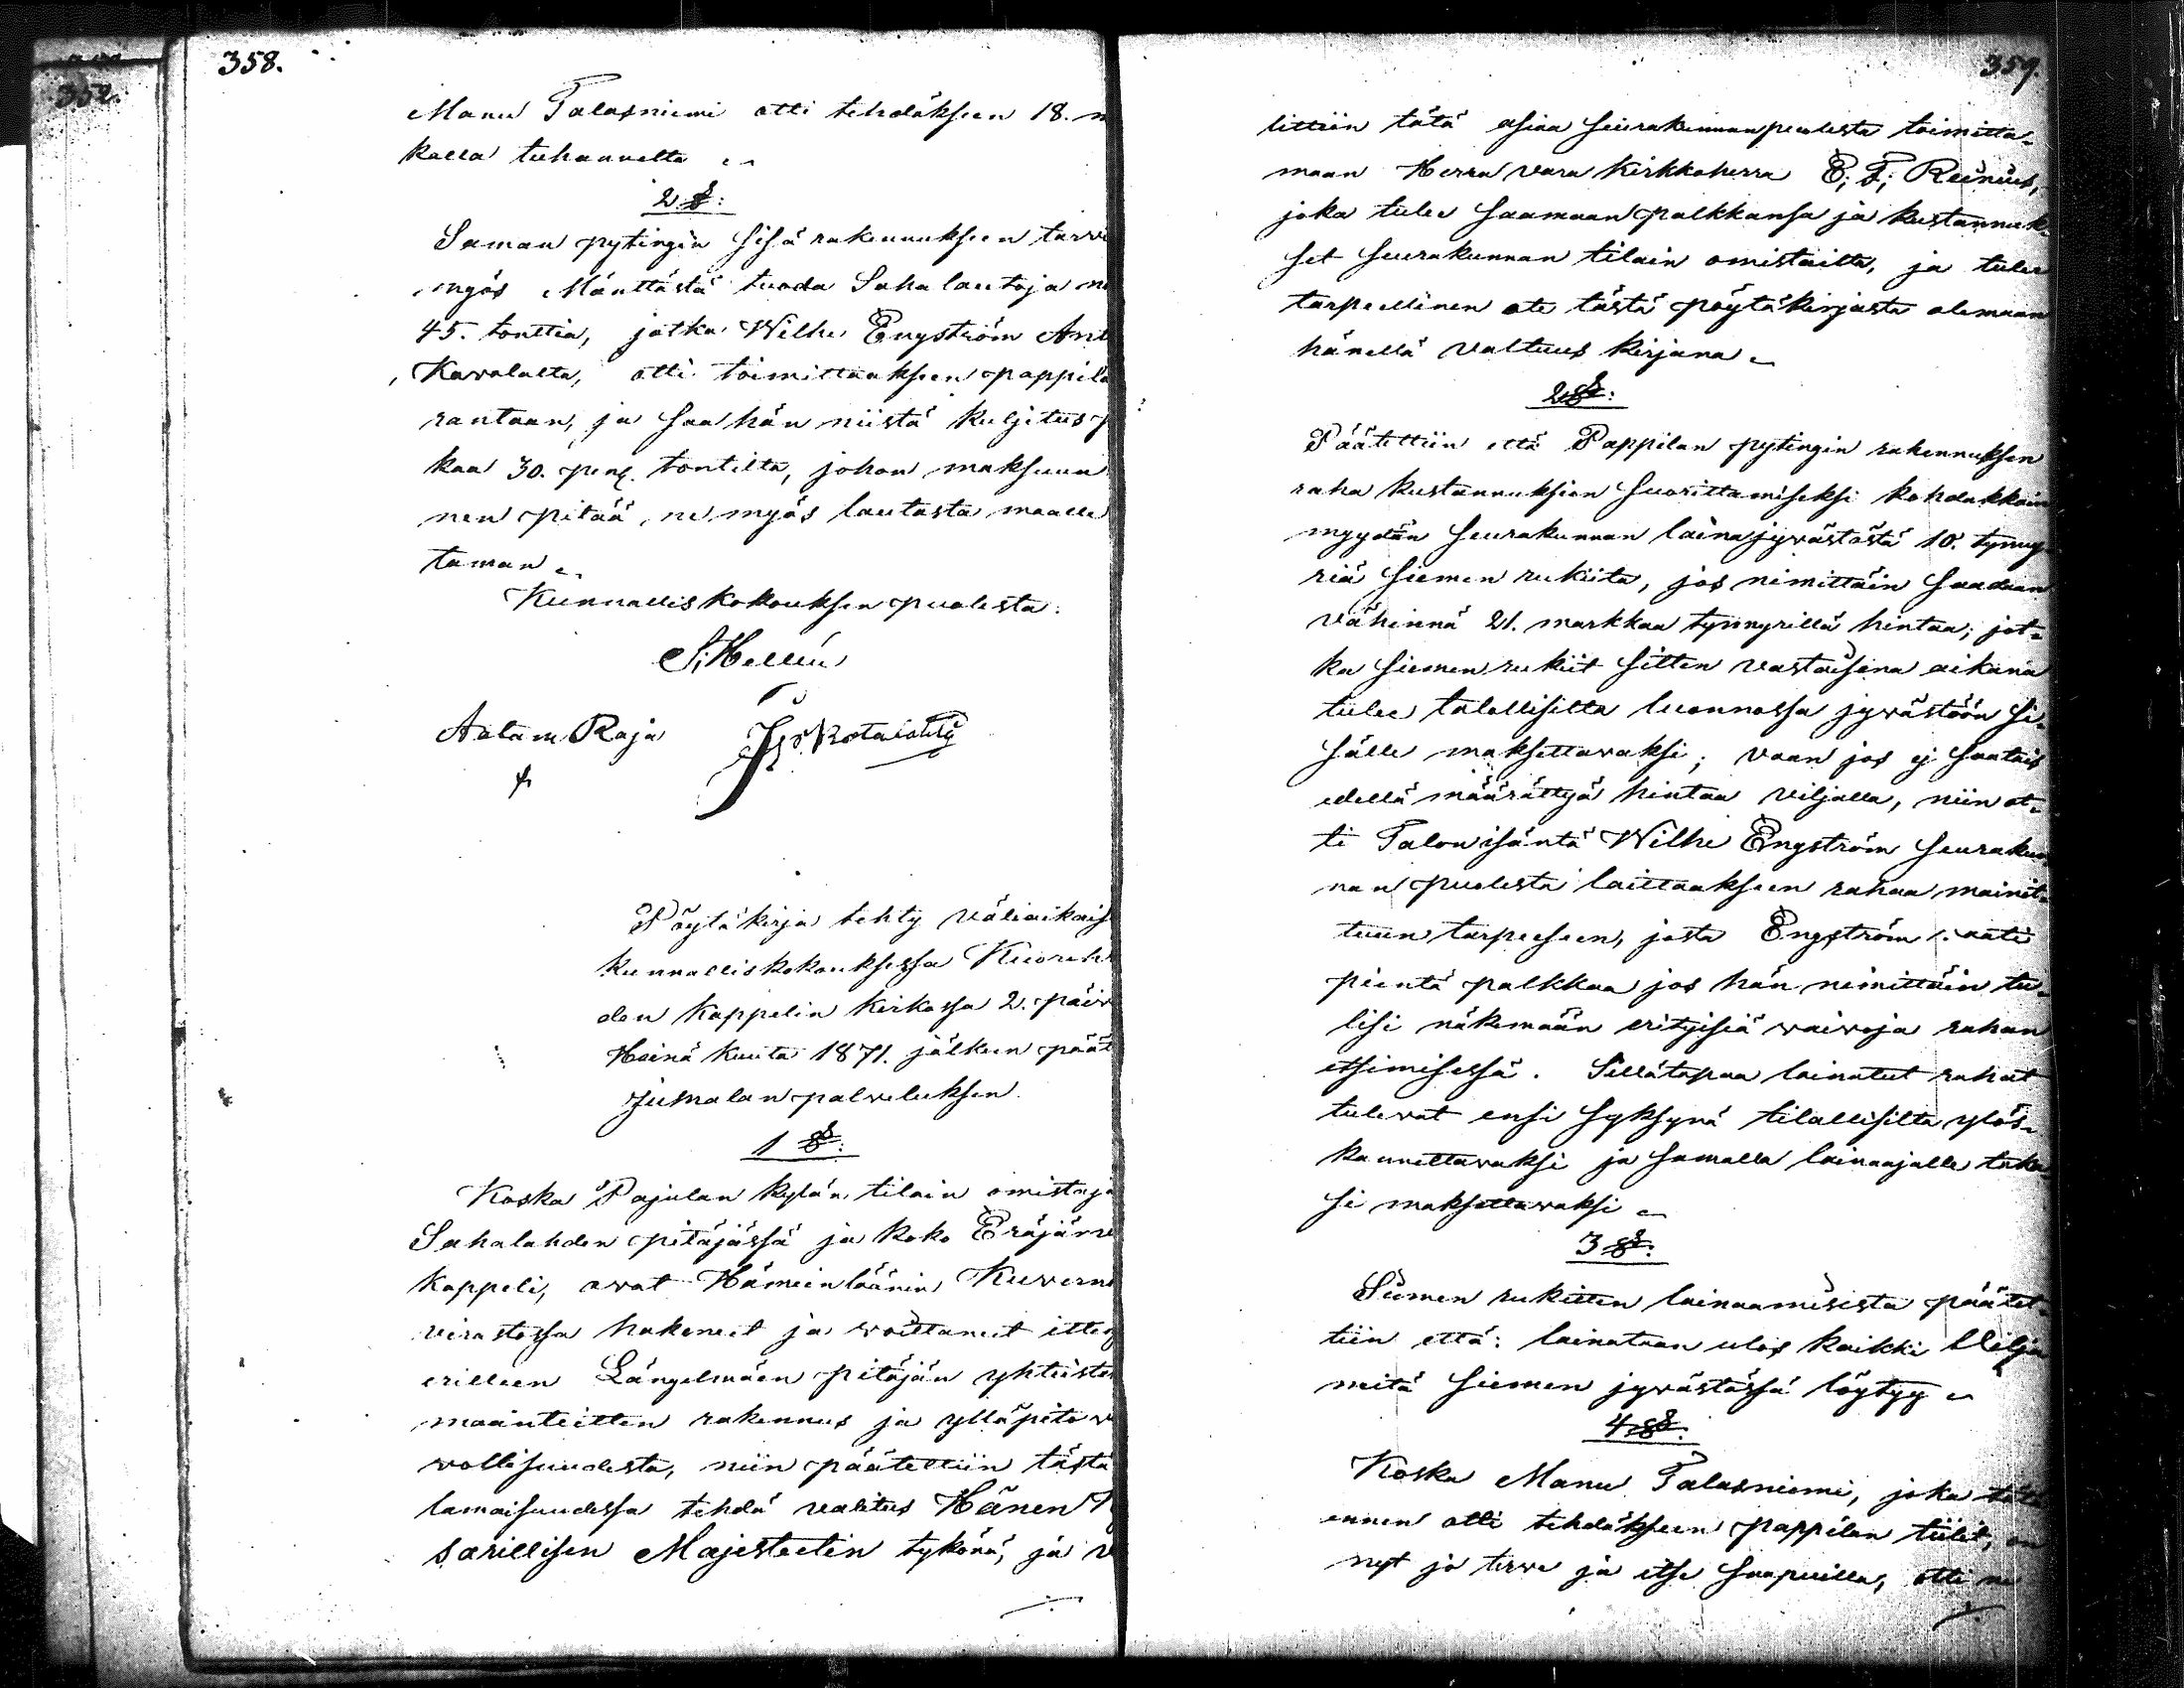 352.
358.
Manu Talasniemi otti tehdäksen 18. m
kalla tuhannelta
2 §:
Saman pytingin sisä rakennukseen tarvi
myös Mänttästä tuoda Saha lautoja n
45. tonttia, jotka Wilhe Engström Ant
Kavalalta, otti toimittaaksen pappila
rantaan, ja saa hän niistä kuljetus p
kaa 30. pen. tontilta, johon maksuun
nen pitää, ne myös lautasta maalle
taman
Kunnallis kokouksen puolesta:
S; Hellén
Aatam Raja
Pöytäkirja tehty väliaikais
kunnalliskokouksessa Kuoreh
den kappelin kirkossa 2. päiv
Heinä kuuta 1871. jälkeen päät
Jumalan palveluksen.
1 §:
Koska Pajulan kylän tilain omistaja
Sahalahden pitäjässä ja koko Eräjärve
kappeli, ovat Hämeinläänin Kuvern
virastossa hakeneet ja voittaneet itte
erilleen Längelmäen pitäjän yhteiste
maanteitten rakennus ja ylläpito v
vollisuudesta, niin päätettiin tästä
lamaisuudessa tehdä valitus Hänen K
sarillisen Majesteetin tykönä, ja v
359.
littiin tätä asiaa seurakunnan puolesta toimitta-
maan Herra vara kirkkoherra E; F; Reinius,
joka tulee saamaan palkkansa ja kustannuk-
set seurakunnan tilain omistailta, ja tulee
tarpeellinen ote tästä pöytäkirjasta olemaan
hänellä valtuus kirjana
2 §:
Päätettiin että Pappilan pytingin rakennuksen
raha kustannuksien suorittamiseksi kohdakkoin
myydän seurakunnan lainajyvästöstä 10. tynny-
riä siemen rukiita, jos nimittäin saadaan
vähinnä 21. markkaa tynnyrillä hintaa; jot-
ka siemen rukiit sitten vastaisena aikana
tulee talollisilta luonnossa jyvästöön si-
sälle maksettavaksi; vaan jos ej saatais
edellä määrättyä hintaa viljalla, niin ot-
ti Talon isäntä Wilhe Engström seurakun
nan puolesta laittaakseen rahaa mainit-
tuun tarpeeseen, josta Engström vaati
pientä palkkaa jos hän nimittäin tu-
lisi näkemään erityisiä vaivoja rahan
etsimisessä. Sillätapaa lainatut rahat
tulevat ensi syksynä tilallisilta ylös-
kannettavaksi ja samalla lainaajalle taka
si maksettavaksi
3 §:
Siemen rukitten lainaamisista päätet-
tiin että: lainataan ulos kaikki Vilja
mitä siemen jyvästössä löytyy
4 §:
Koska Manu Talasniemi, joka tätä
ennen otti tehdäkseen pappilan tiilit, on
nyt jo terve ja itse saapuilla, otti ne